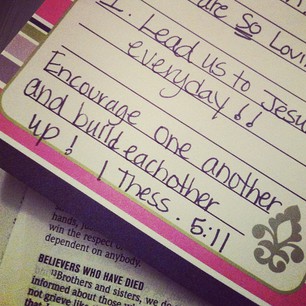 are So Lovin
1. Lead us to Jesu
everyday!!
Encourage one another
and build eachother
up! 1 Thess. 5:11
hands, just
win the respect o
dependent on anybody.
BELIEVERS WHO HAVE DIED
"Brothers and sisters, we do
informed about those wh
not grieve like